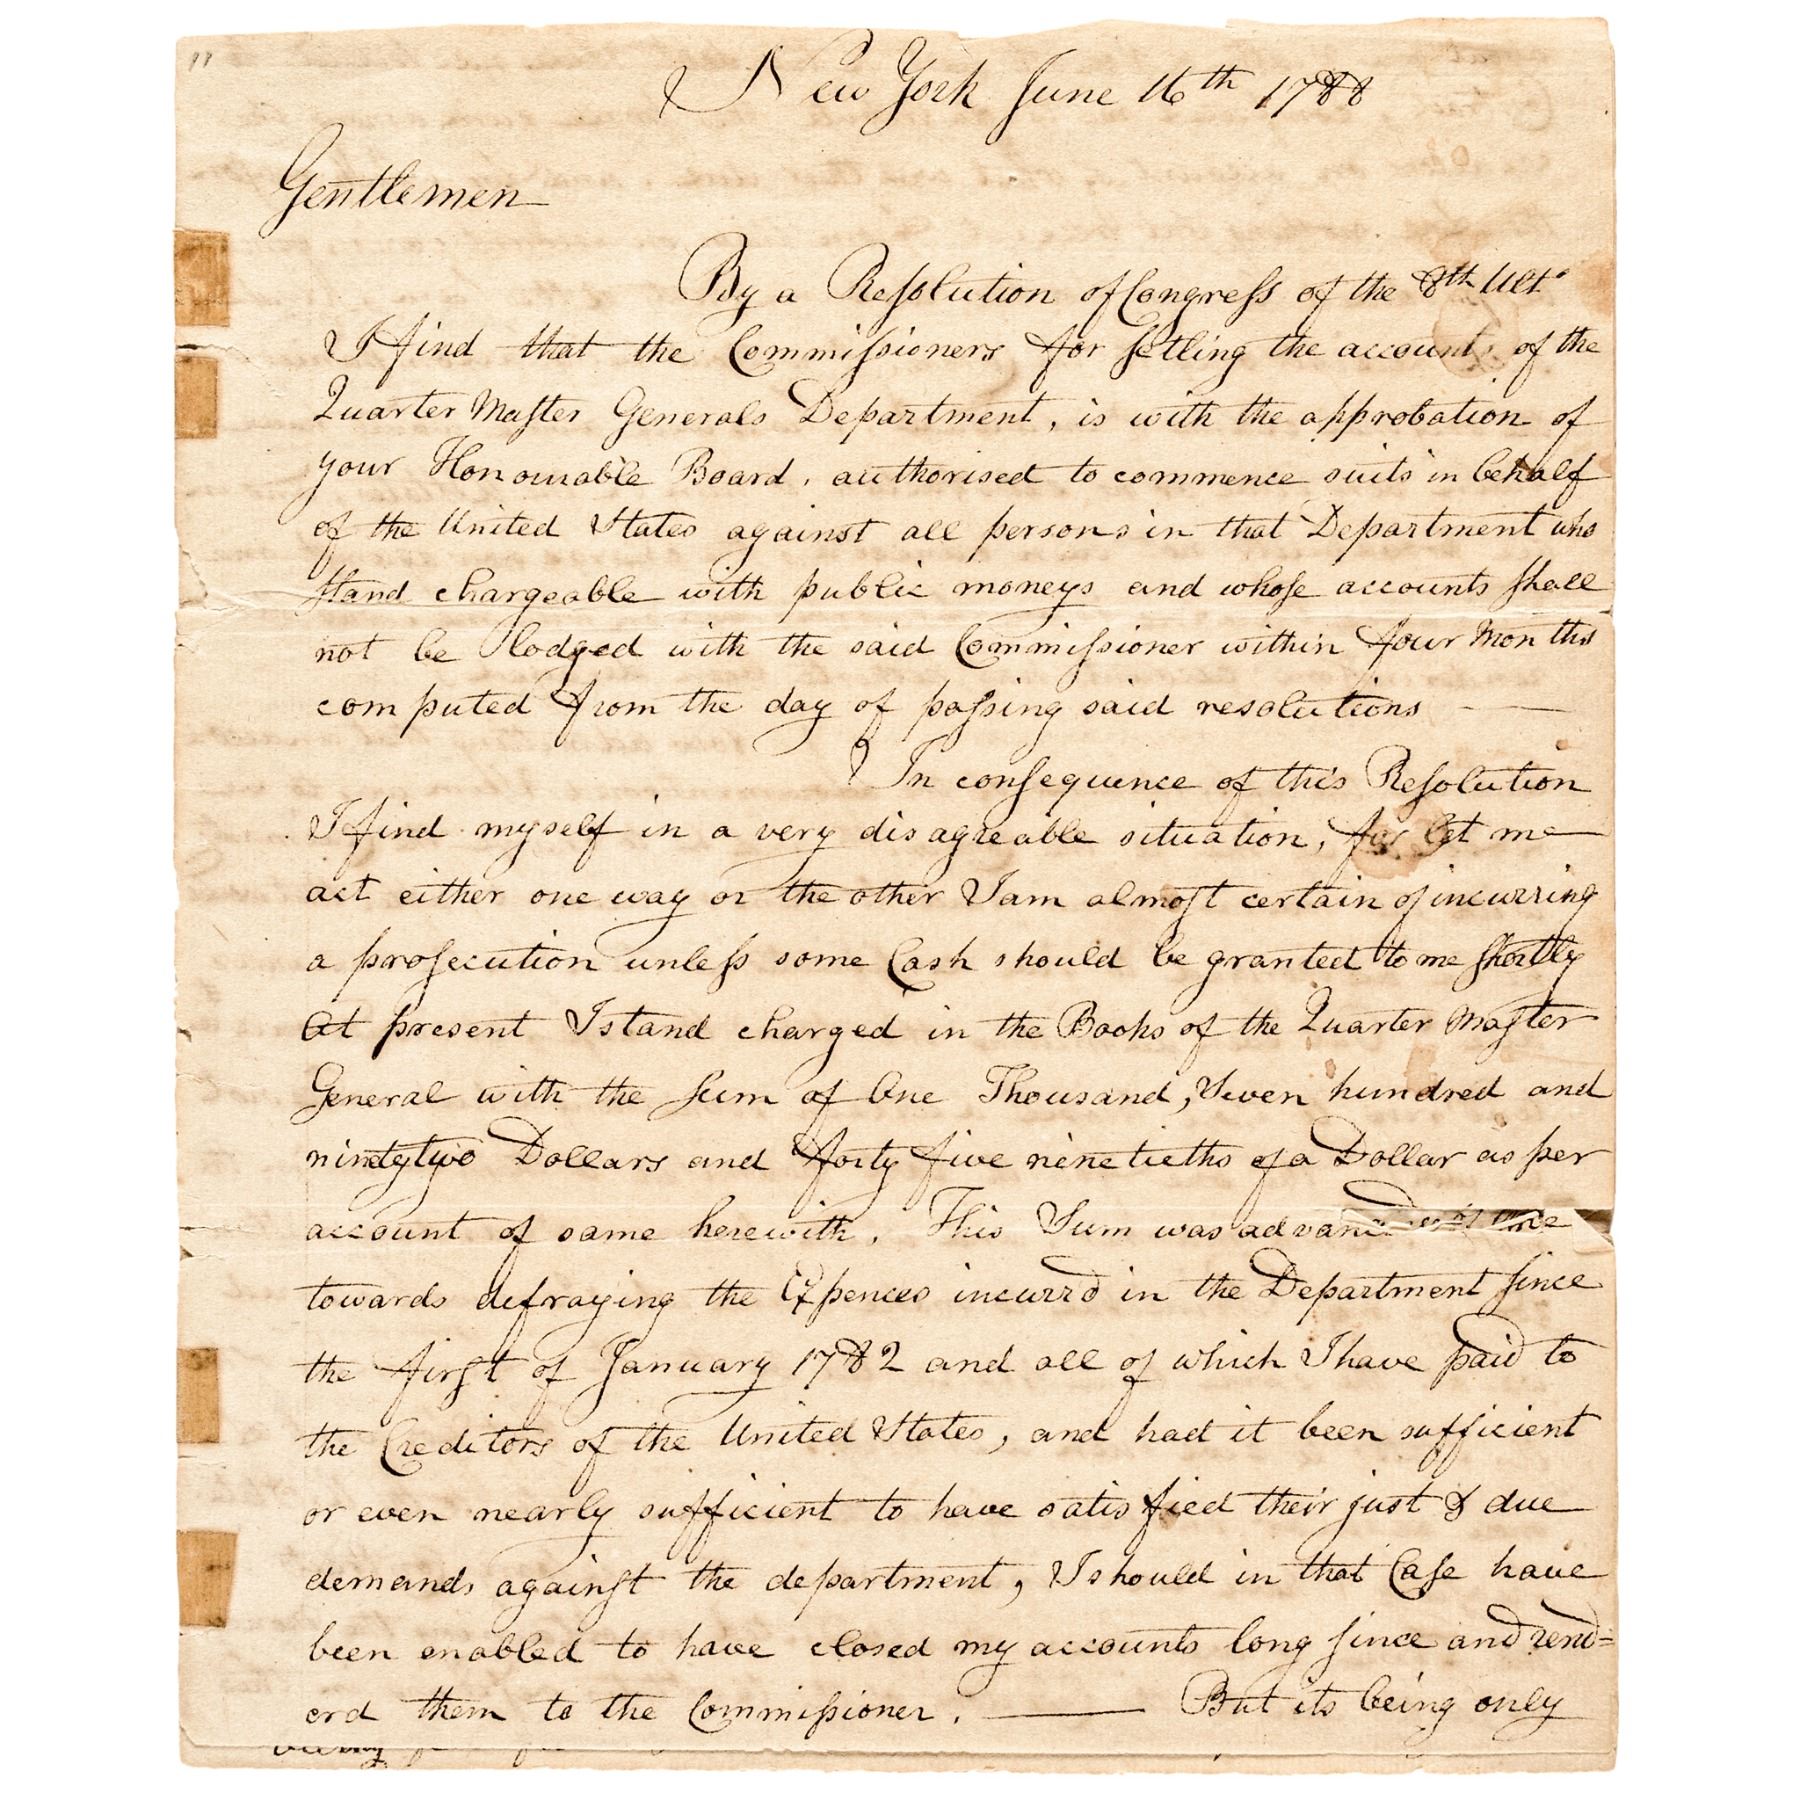 New York June 16th 1788
Gentlemen
By a Resolution of Congress of the 8th Ulto
I find that the Commissioners for setling the accounts of the
Quarter Master Generals Department, is with the approbation of
your Honourable Board, authorised to commence suits in behalf
of the United States against all persons in that Department who
stand chargeable with public moneys and whose accounts shall
not be lodged with the said Commissioner within four Months
computed from the day of passing said resolutions —
In consequence of this Resolution
I find myself in a very disagreable situation, for let me
act either one way or the other I am almost certain of incurring
a prosecution unless some Cash should be granted to me shortly
At present I stand charged in the Books of the Quarter Master
General with the Sum of One Thousand, Seven hundred and
ninetytwo Dollars and forty five ninetieths of a Dollar as per
account of same herewith. This Sum was advanced me
towards defraying the Expences incurrd in the Department since
the first of January 1782 and all of which I have paid to
the Creditors of the United States, and had it been sufficient
or even nearly sufficient to have satisfied their just & due
demands against the department, I should in that Case have
been enabled to have closed my accounts long since and rend=
erd them to the Commissioner. — But its being only